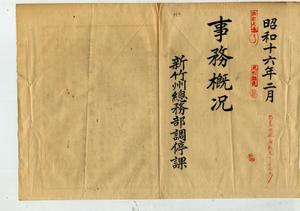 昭和十六年二月
事務概況
新竹州總務部調停課